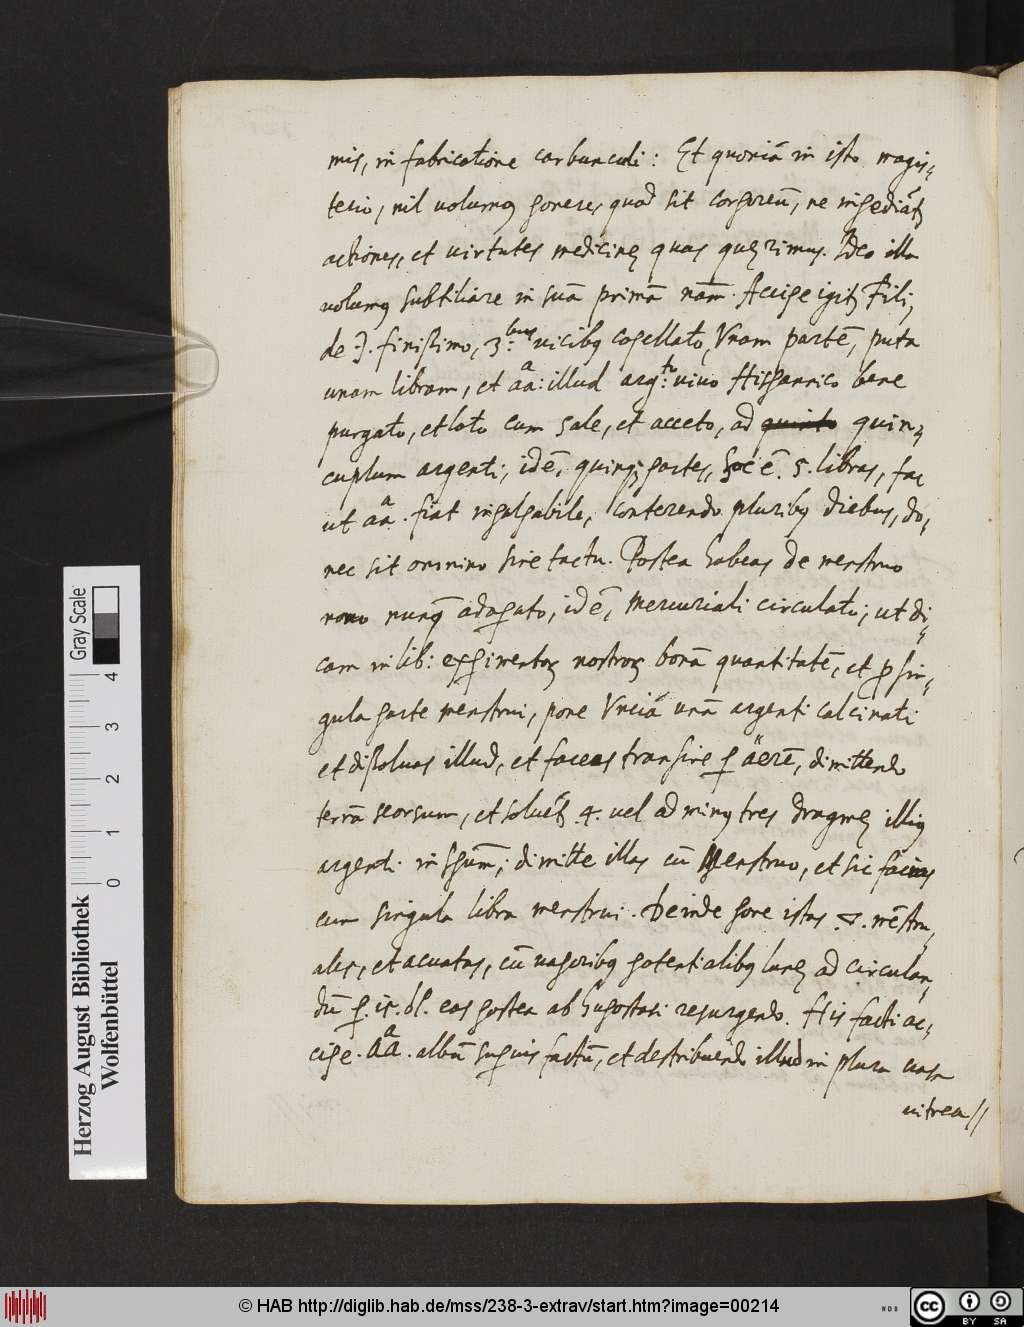 mis, in fabricatione carbunculi: Et quoniã in isto magis-
terio, nil volumꝰ ponere, quod sit corporeũ, ne impediãt
actiones, et virtutes medicinę quas quęrimus. Ideo illa
volumꝰ subtiliare in suã primã nãm. Accipe igit Fili,
de ☽. finißimo, 3.bus vicibꝰ copellato, Vnam partẽ, puta
unam libram, et aãa: illud argto: vivo Hispannico bene
purgato, et loto cum sale, et acceto, ad quin-
cuplum argenti, idẽ, quinqꝫ partes, hoc ẽ. 5. libras, fac
ut aãa. fiat impalpabile, conterendo pluribꝰ diebus, do-
nec sit omnino sine tactu. Postea habeas de menstruo
novo nunq̃ adoperato, idẽ, mercuriali circulato, ut di-
cam in lib: experimentoꝝ nostroꝝ bonã quantitatẽ, et p sin-
gula parte menstrui, pone Vnciã unã argenti calcinati
et dißolvas illud, et faceas transire p äerẽ, dimittendo
terrã seorsum, et solvẽt 4. vel ad minꝰ tres dragmę illiꝰ
argenti in spũm; dimitte illas cũ Menstruo, et sic facias
cum singula libra menstrui. Deinde pone istas mẽstru-
ales, et acuatas, cũ vaporibꝰ potentialibꝰ lunę ad circulan-
dũ p. 15. dl. eas postea ab hypostasi resurgendo. His facti ac-
cipe. aãa. albũ supius factũ, et destribuendo illud in plura vasa
vitrea//
Gray Scale
0 1 2 3 4
Herzog August Bibliothek
Wolfenbüttel
© HAB http://diglib.hab.de/mss/238-3-extrav/start.htm?image=00214
cc BY SA